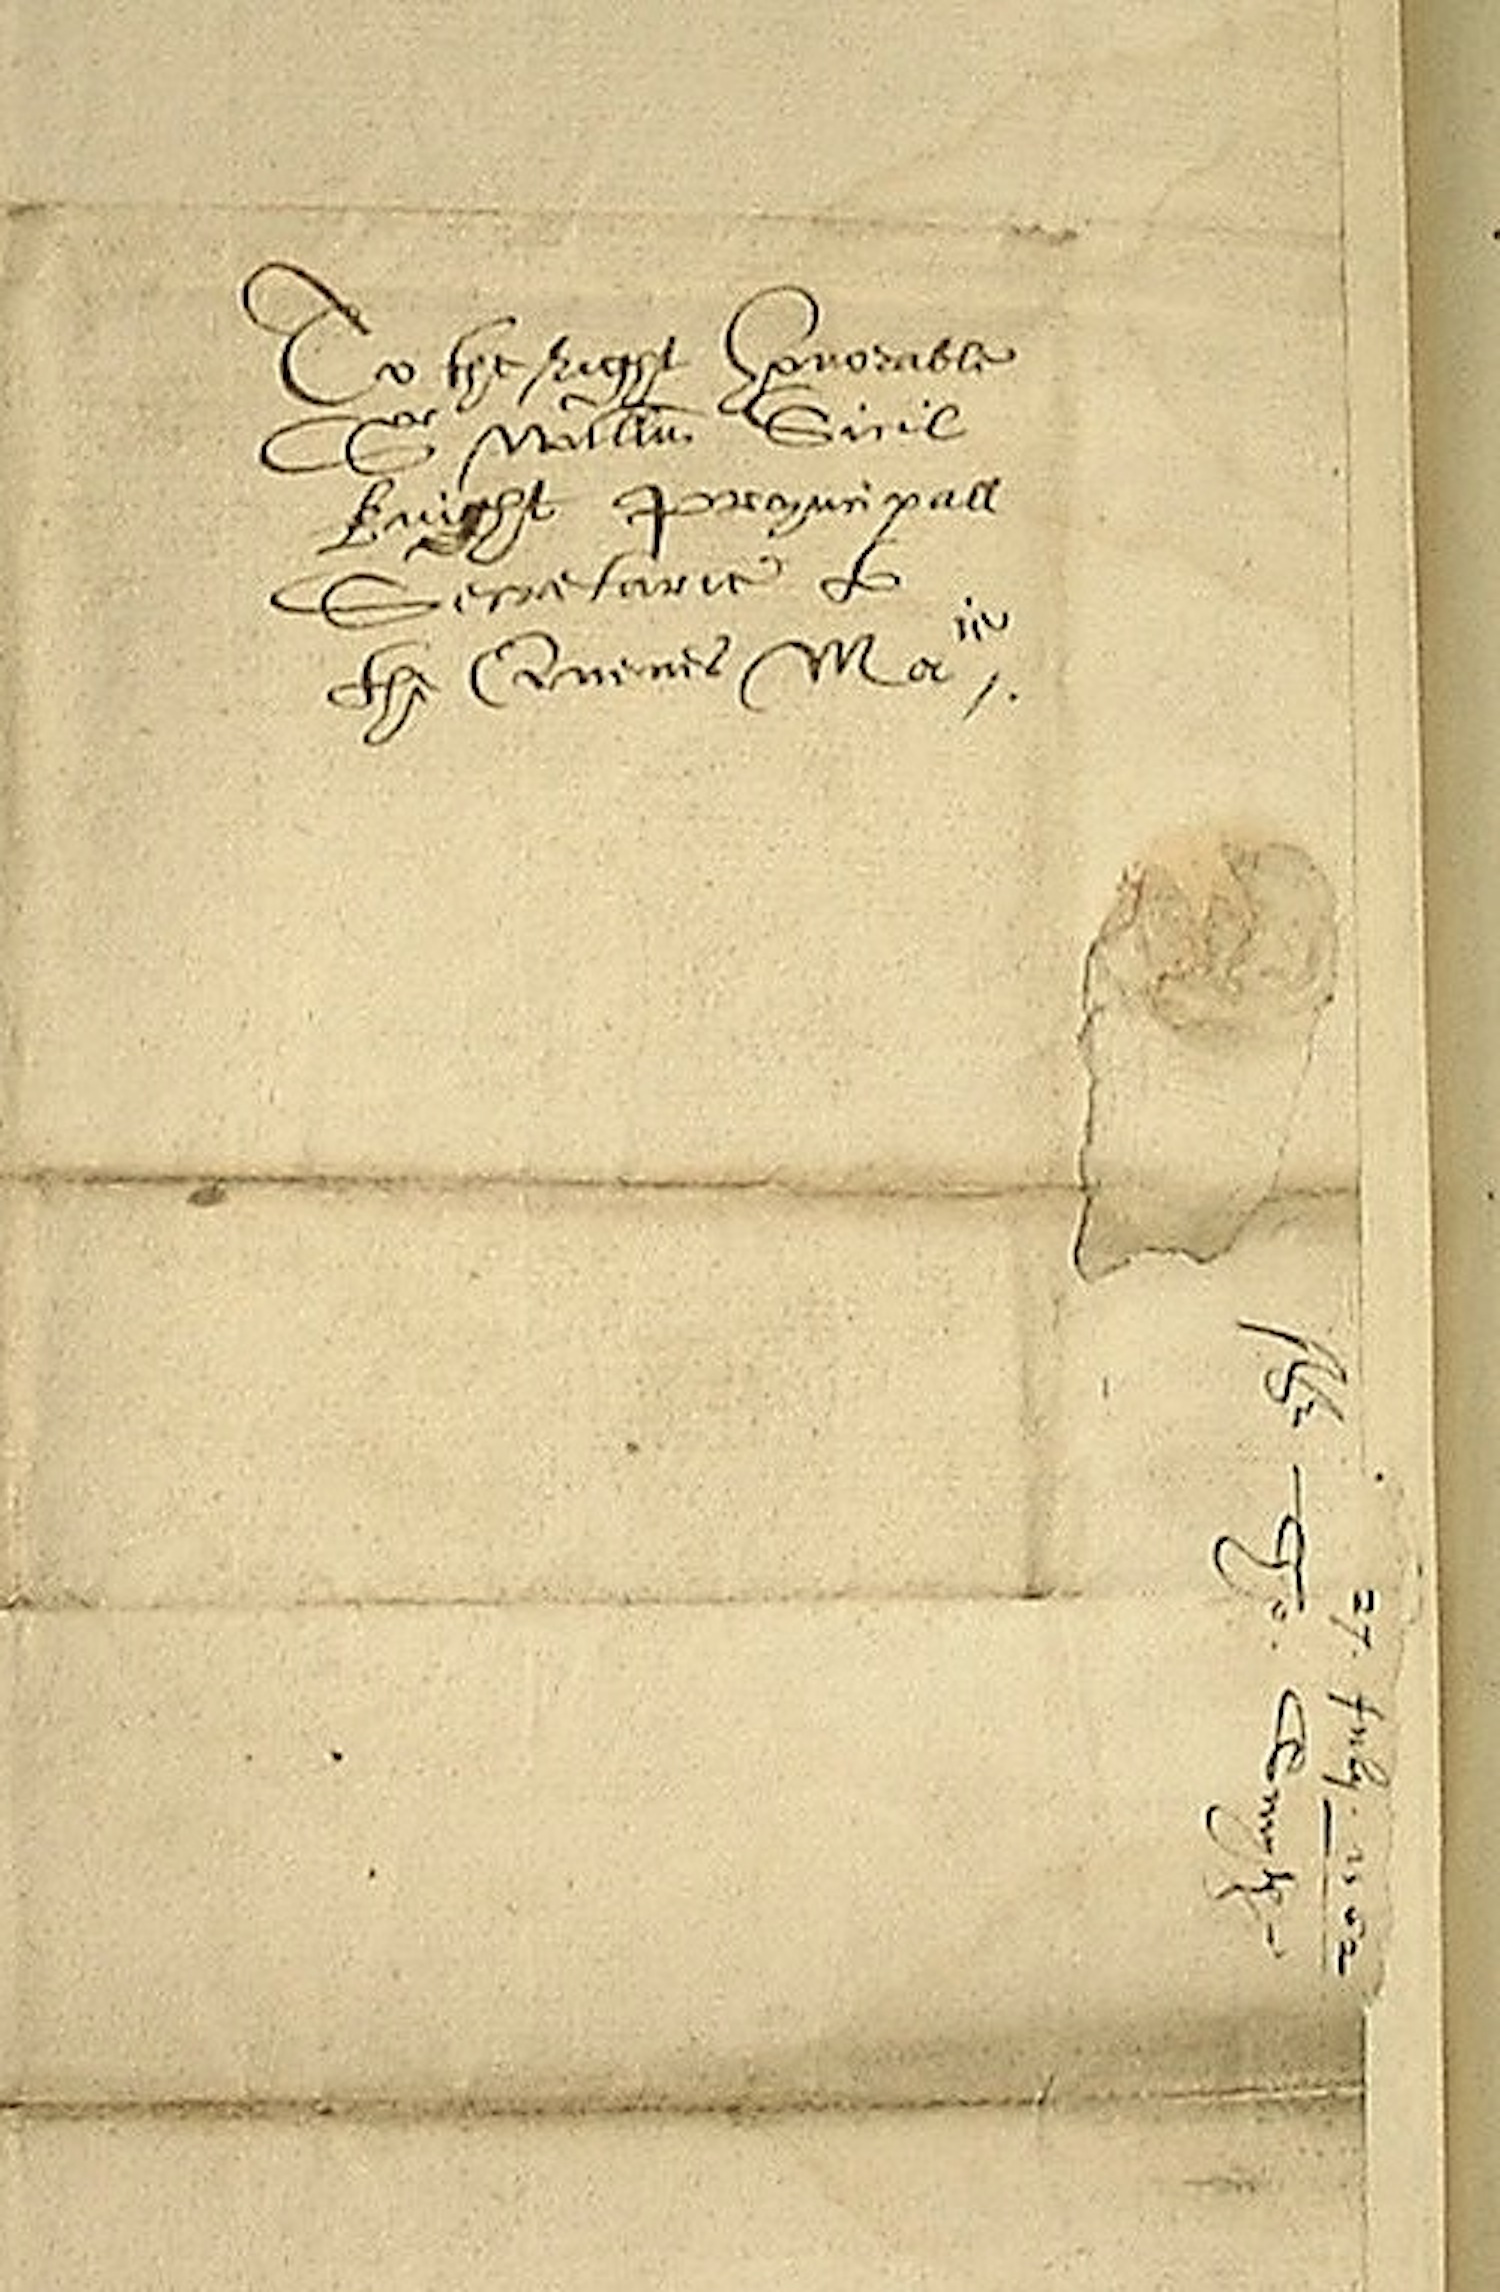 To the right honorable
Sr Willm̄ Sicil
knight pryncipall
Secretarie to
the Quenes Matie /.
27 July. 1562